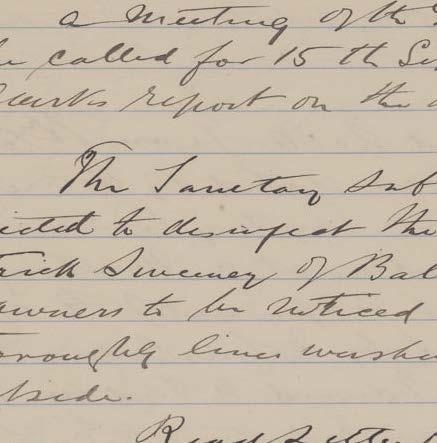 a meeting of th
be called for 15 th Se
Clarks report on the
The Sanetary sub
ected to desinfect the
trick Sweeney of Bal
owners to be noticed
oroughly lime washe
tside.
Read letter